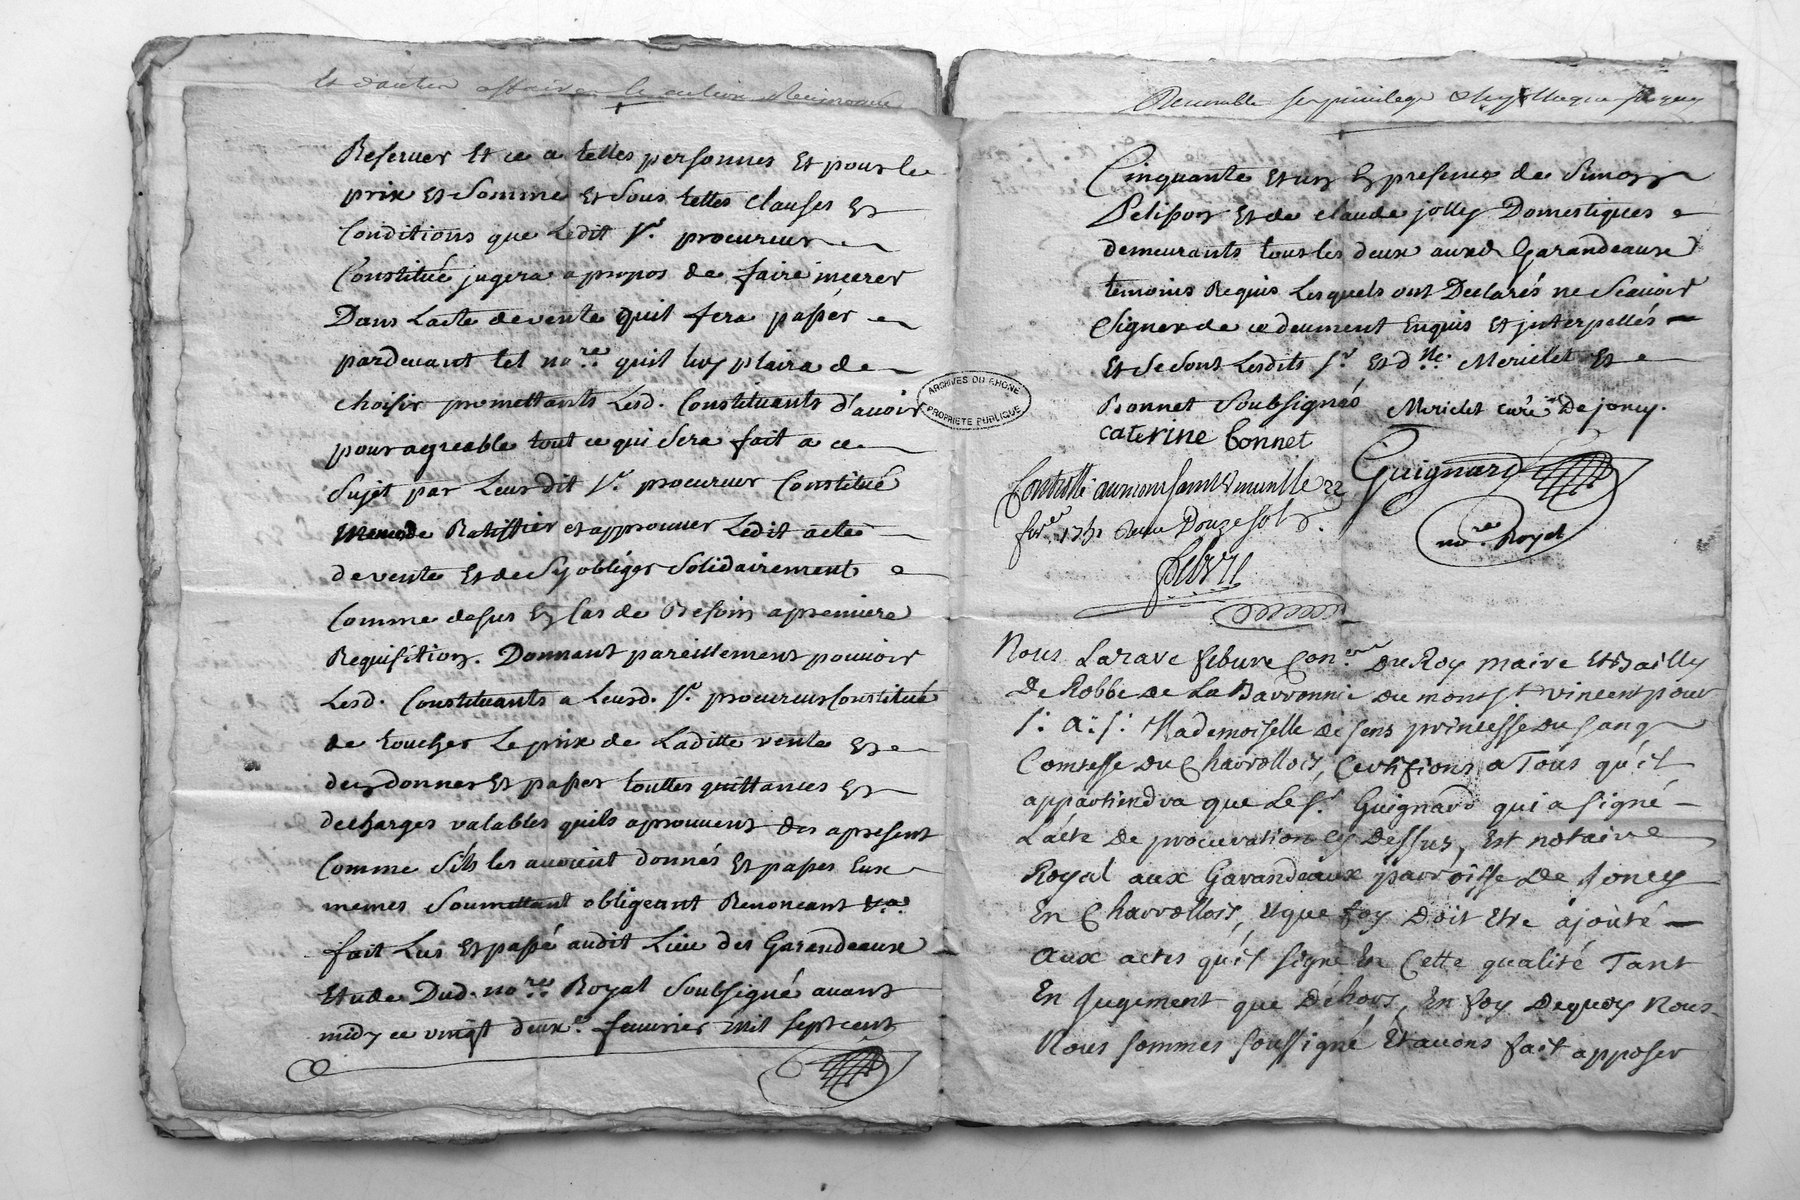 Et d'autre affaire
Reseruer Et ce a telles personnes Et pour le
prix Et Somme Et Sous telles Clauses Et
Conditions que Ledit Sr. procureur
Constitué jugera apropos de faire incerer
Dans Lacte devente quil fera passer
pardeuant tel nore. quil luy plaira de
choisir promettants Lesd. Constituants d'auoir
pour agreable tout ce qui Sera fait a ce
Sujet par Leurdit Sr. procureur Constitué
Meme de Ratiffier et approuuer Ledit acte
devente Et de Sy obliger Solidairement
Comme desus En Cas de Besoin a premiere
Requisition. Donnant pareillement pouuoir
Lesd. Constituants a Leurd. Sr. procureur Constitué
de toucher Le prix de Laditte vente Et
den donner Et passer touttes quittances Et
decharges valables quils aprouuent des apresent
Comme Sils les auoient donnés Et passes Eux
memes Soumettant obligeant Renonceant
fait Lus Et passé audit Lieu des Garandeaux
Etude Dud. nore. Royal Soubsigné auant
midy ce vingt deuxe. feuurier mil Sept cent
ARCHIVES DU RHONE
PROPRIETE PUBLIQUE
Cinquante Et un En presence de Simon
Pelisson Et de Claude jolly Domestiques
demeurants tous les deux auxd Garandeaux
temoins Requis Lesquels ont Declarés ne Scauoir
Signer de ce deument Enquis Et interpellés
Et Se Sont Lesdits Sr. Et dlle. Mericlet Et
Bonnet Soubsignés Mericlet curé De joncy.
caterine bonnet
Guignard
nore Royal
Controllé au mont Saint Vincent le 22
fer. 1751 Receu Douze sols.
febvre
Nous Lazare febure Coner. Du Roy maire Et Bailly
De Robbe de La Baronnie du mont St. vincent pour
S. A. S. Mademoiselle de Sens princesse du Sang
Comtesse du Charrollois, Certifions a Tous qu'il
appartiendra que Le Sr. Guignard qui a Signé
L'acte De procuration Cy Dessus, Est notaire
Royal aux Garandeaux parroisse de Joncy
En Charrollois, Et que foy Doit Etre ajouté
Aux actes qu'il Signe En Cette qualité Tant
En Jugement que Déhors, En foy Dequoy Nous
Nous sommes soussigné Et auons fait apposer